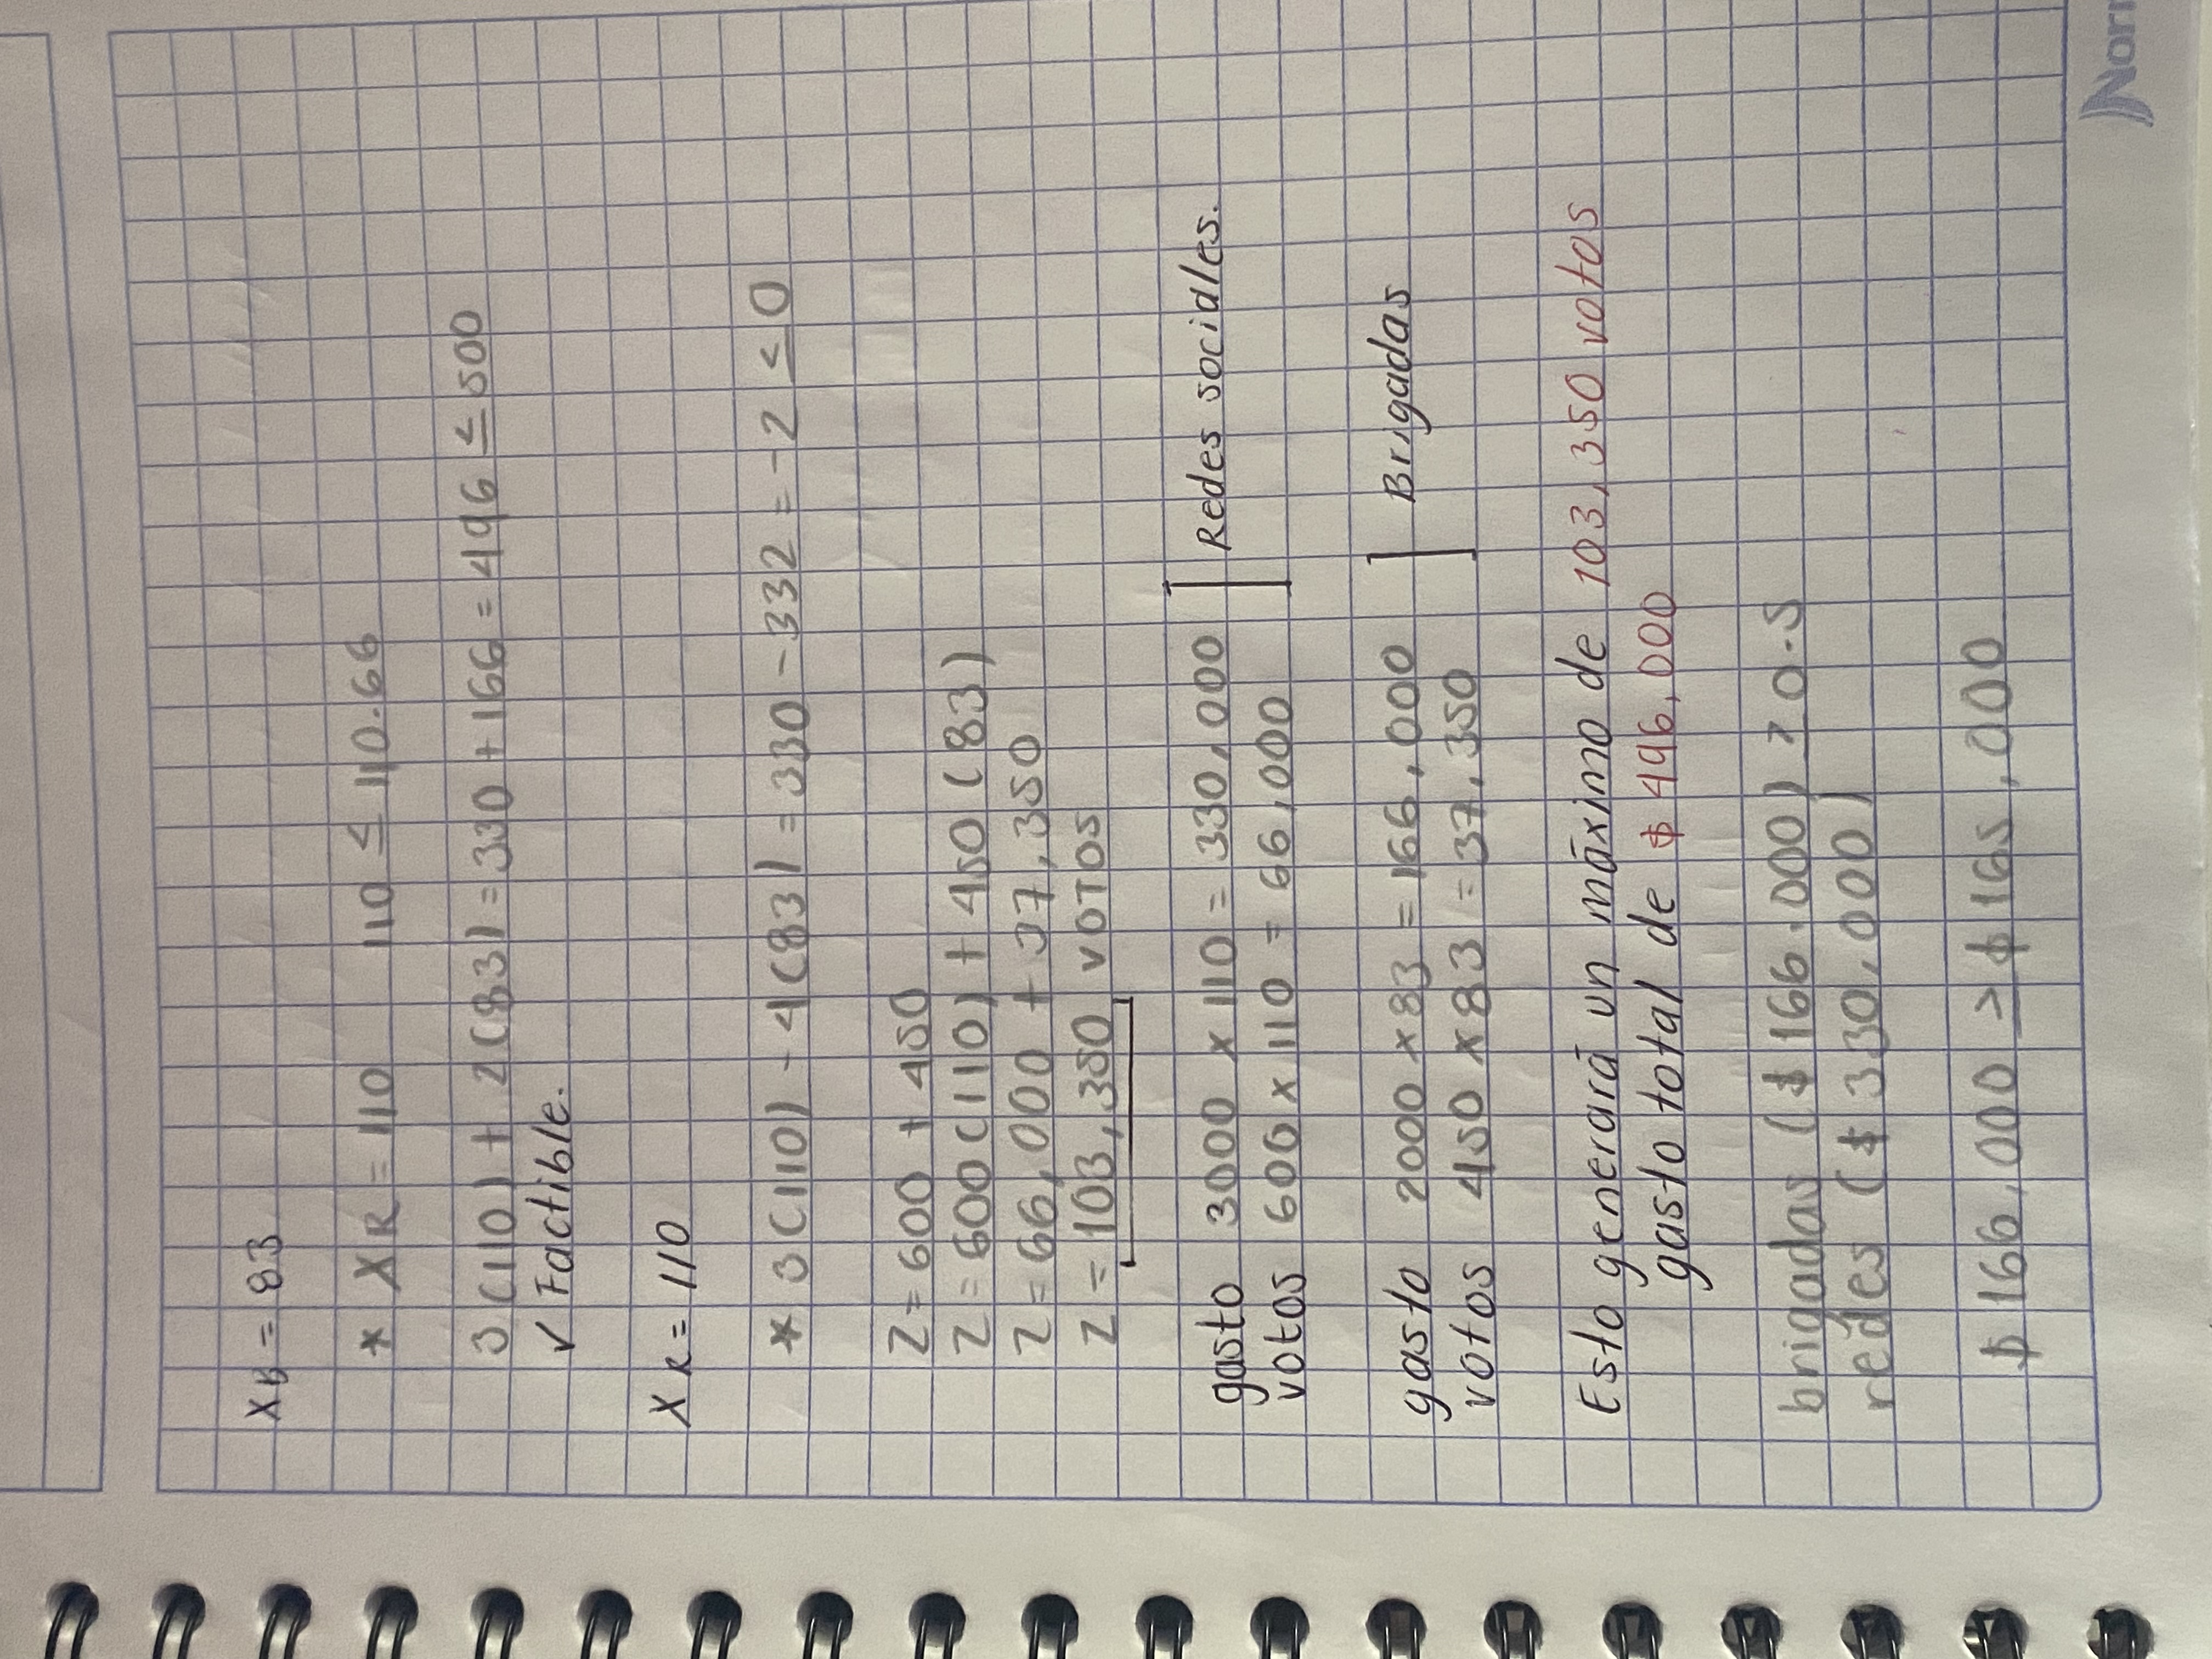 XB = 83
* XR = 110 110 ≤ 110.66
3(110) + 2(83) = 330 + 166 = 496 ≤ 500
✓ Factible.
XR = 110
* 3(110) - 4(83) = 330 - 332 = -2 ≤ 0
Z = 600 + 450
Z = 600(110) + 450(83)
Z = 66,000 + 37,350
Z = 103,350 votos
gasto 3000 x 110 = 330,000 ] Redes sociales.
votos 600 x 110 = 66,000
gasto 2000 x 83 = 166,000 ] Brigadas
votos 450 x 83 = 37,350
Esto generará un máximo de 103,350 votos
gasto total de $ 496,000
brigadas ($ 166,000) ≥ 0.5
redes ($ 330,000)
$ 166,000 ≥ $ 165,000